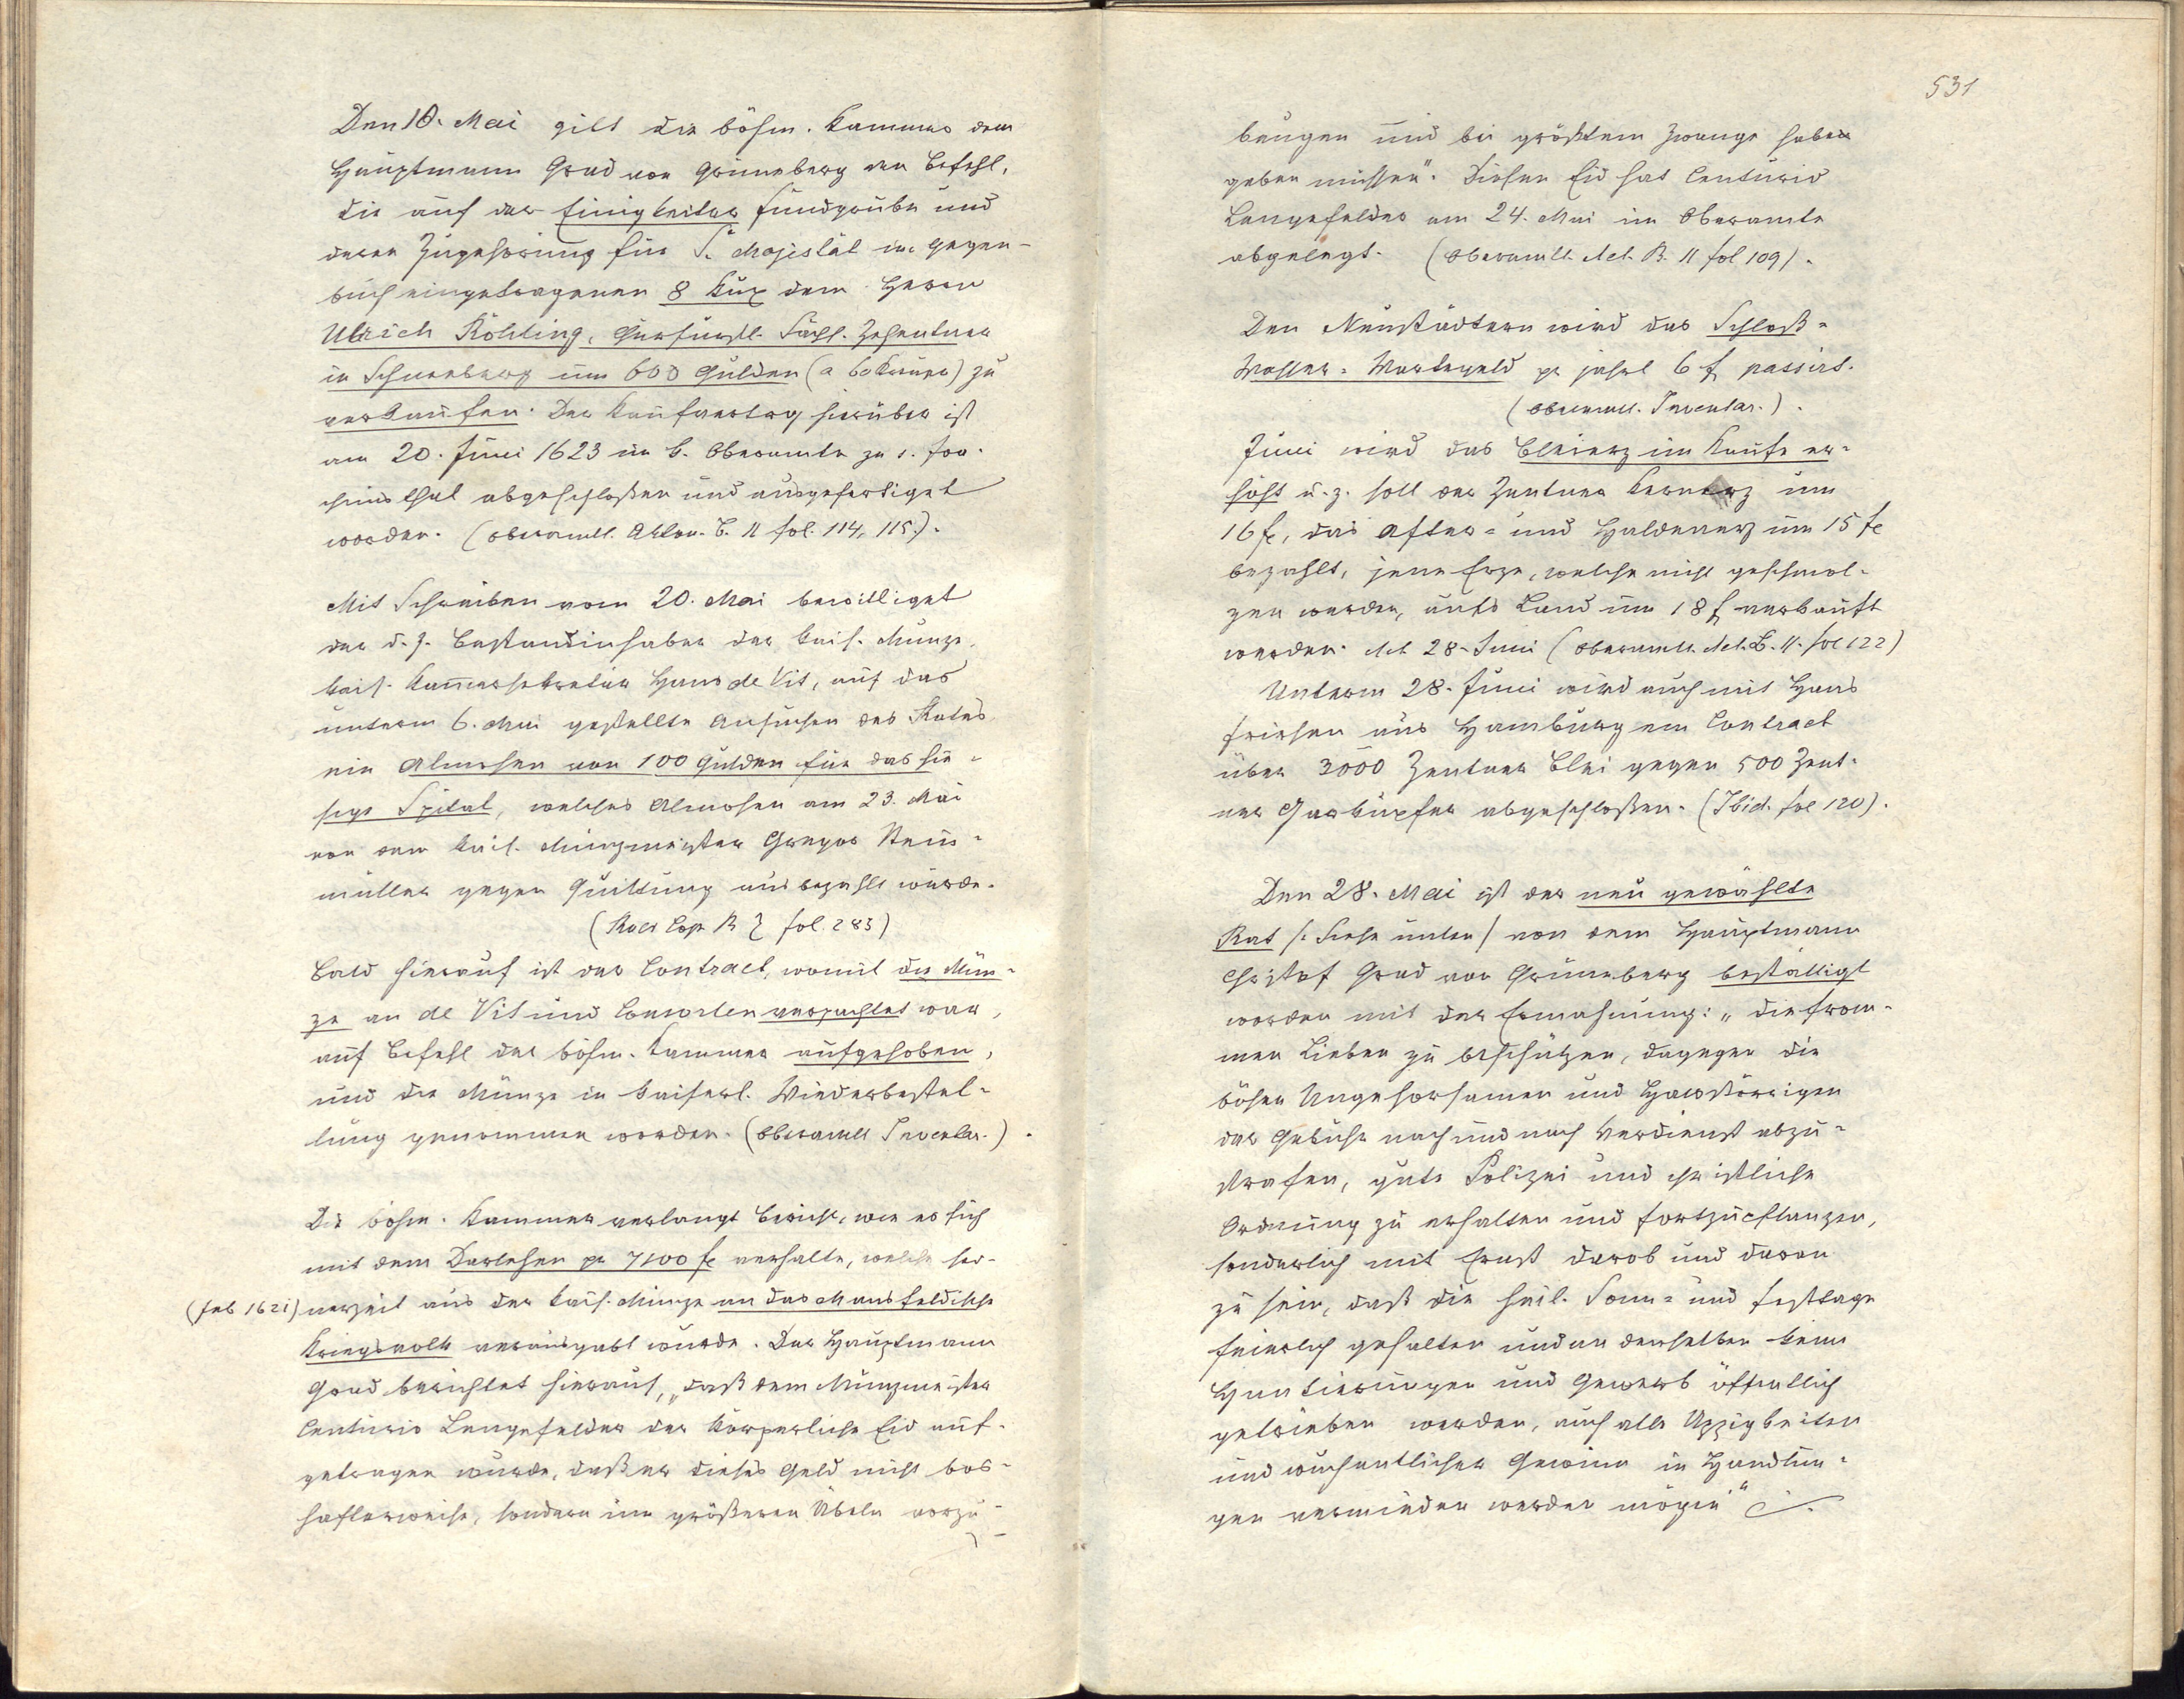 Den 18. Mai gibt die böhm. Kammer dem
Hauptmann Grad von Grüneberg den Befehl,
die auf der Einigkeiter Fundgrube und
deren Zugehörung für S. Majestät im Gegen-
buch eingetragenen 8 Kux dem Herrn
Ulrich Röhling, Churfürstl. Sächs. Zehentner
in Schneeberg um 600 Gulden (a 60 Kreuzer) zu
verkaufen. Der Kaufvertrag hierüber ist
am 20. Juni 1623 im k. Oberamte zu s. Joa-
chimsthal abgeschloßen und ausgefertiget
worden. (oberamtl. Akten. B. 11 fol. 114, 115).
Mit Schreiben vom 20. Mai bewilliget
der d. z. Bestandinhaber der kais. Münze,
kais. Kammersekretär Hans de Vit, auf das
unterm 6. Mai gestellte Ansuchen des Rates
ein Almosen von 100 Gulden für das hie-
sige Spital, welches Almosen am 23. Mai
von dem kais. Münzmeister Gregor Stein-
müller gegen Quittung ausbezahlt wurde.
(Rats Cop. B fol. 283)
Bald hierauf ist der Contract, womit die Mün-
ze an de Vit und Consorten verpachtet war,
auf Befehl der böhm. Kammer aufgehoben,
und die Münze in kaiserl. Wiederbestel-
lung genommen worden. (Oberamtl. Inventar.).
Die böhm. Kammer verlangt Bericht, wie es sich
mit dem Darlehen pr 7100 fl verhalte, welche fer-
(Feb 1621) nerzeit aus der kais. Münze an das Mansfeldische
Kriegsvolk verausgabt wurde. Der Hauptmann
Grad berichtet hierauf, „daß dem Münzmeister
Centurio Lengefelder der körperliche Eid auf-
getragen wurde, daß er dieses Geld nicht bos-
hafterweise, sondern um größeren Übeln vorzu-
531
beugen und bei größtem Zwange habe
geben müssen“. Diesen Eid hat Centurio
Lengefelder am 24. Mai im Oberamte
abgelegt. (Oberamtl. Act. B. 11 fol 109).
Den Neustädtern wird das Schloß-
Wasser-Wartegeld pr jährl 6 f passirt.
(Oberamtl. Inventar.).
Juni wird das Bleierz im Kaufe er-
höht u. z. soll der Zentner Kernerz um
16 fl, das After- und Haldenerz um 15 fl
bezahlt, jene Erze, welche nicht geschmol-
zen werden, aufs Land um 18 f verkauft
werden. Act 28. Juni (Oberamtl. Act. B. 11. fol 122)
Unterm 28. Juni wird auch mit Hans
Friesen aus Hamburg ein Contract
über 3000 Zentner Blei gegen 500 Zent-
ner Garkupfer abgeschloßen. (Ibid. fol 120).
Den 28. Mai ist der neu gewählte
Rat /: Siehe unten / von dem Hauptmann
Christof Grad von Grüneberg bestätigt
worden mit der Ermahnung: „die from-
men Lieben zu beschützen, dagegen die
bösen Ungehorsamen und Halsstörrigen
der Gebühr nach und nach Verdienst abzu-
strafen, gute Polizei und christliche
Ordnung zu erhalten und fortzupflanzen,
sonderlich mit Ernst darob und daran
zu sein, daß die heil. Sonn- und Festtage
feierlich gehalten und an denselben keine
Hantierungen und Gewerb öffentlich
getrieben werden, auch alle Üppigkeiten
und wucherlicher Gewinn in Handlun-
gen vermieden werden mögen“